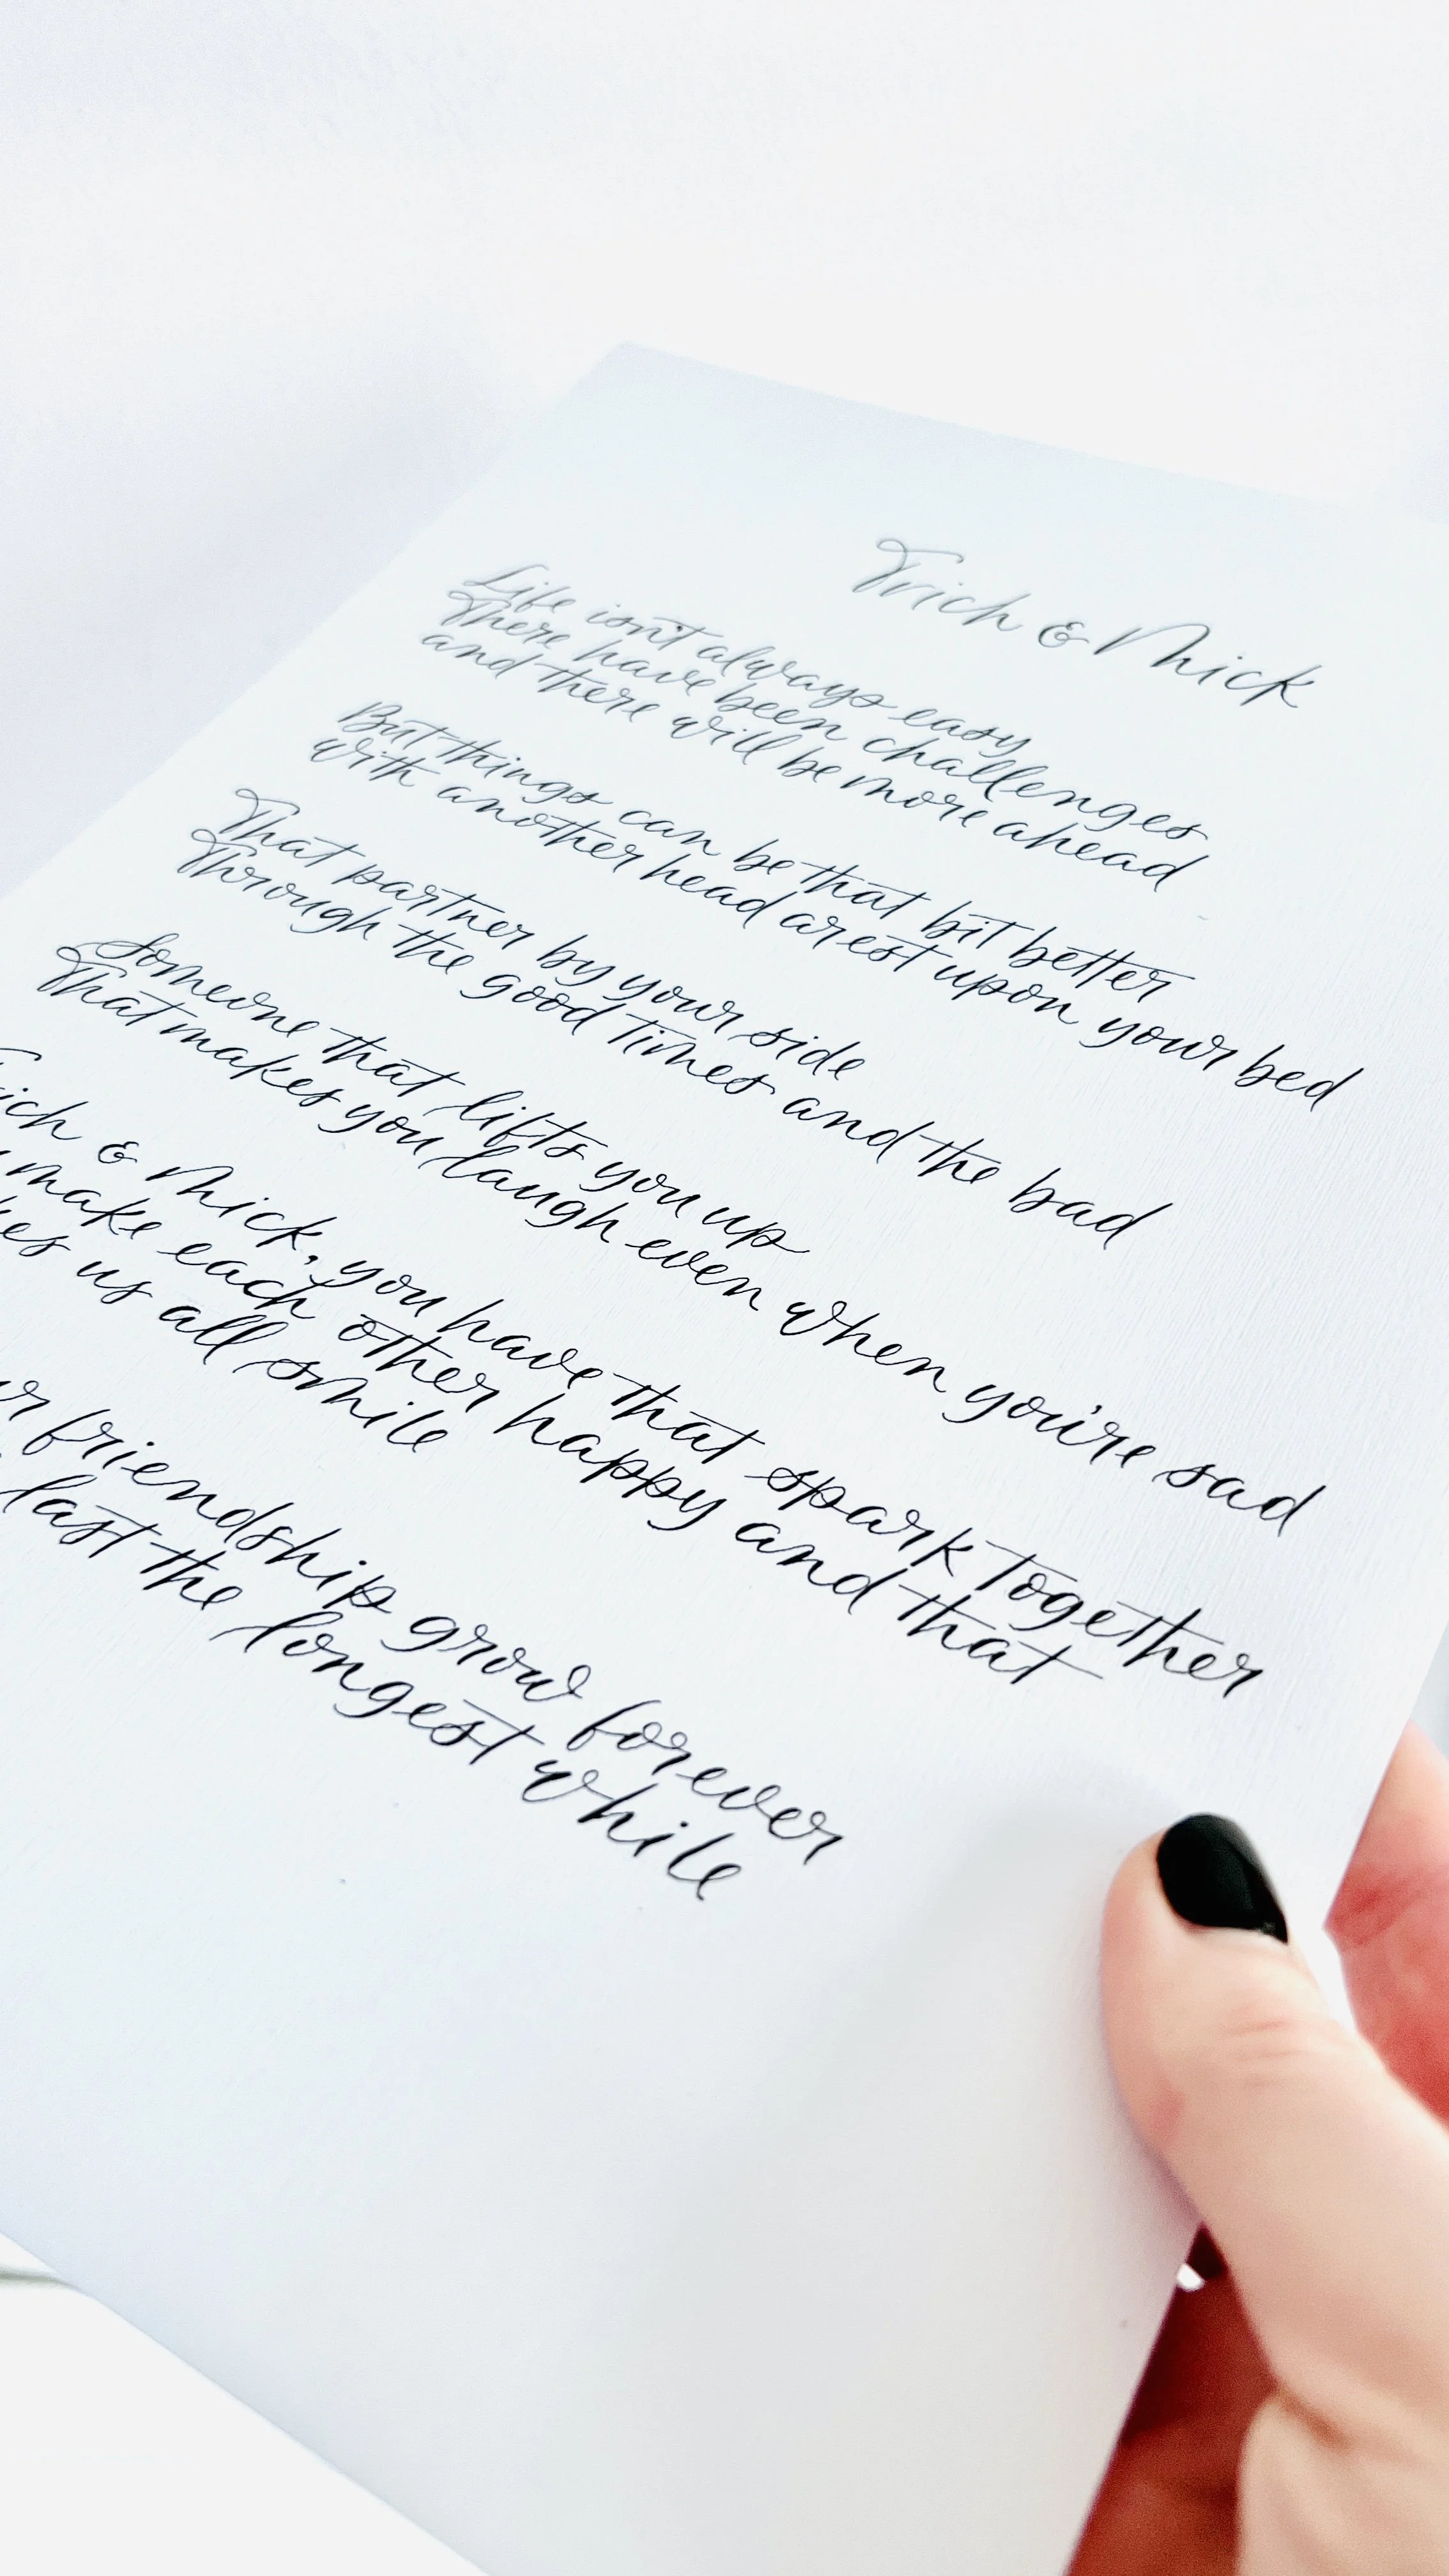 Trich & Mick
Life isn't always easy
There have been challenges
and there will be more ahead
But things can be that bit better
with another head arest upon your bed
That partner by your side
Through the good times and the bad
Someone that lifts you up
That makes you laugh even when you're sad
& Mick, you have that spark together
make each other happy and that
us all smile
friendship grow forever
last the longest while